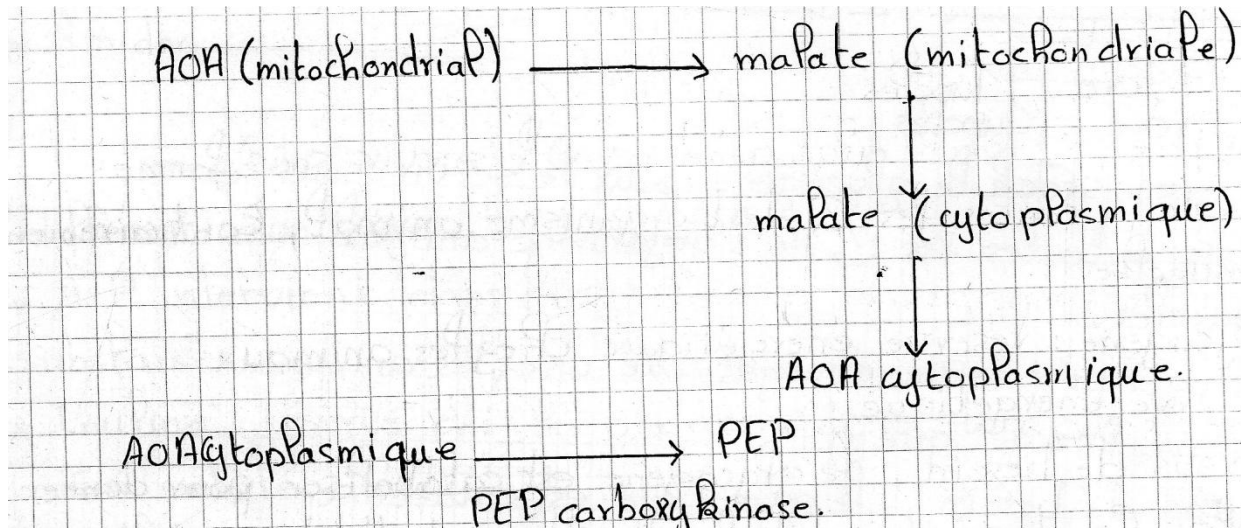 AOA (mitochondrial) → malate (mitochondriale)
malate (cytoplasmique)
AOA cytoplasmique.
AOA cytoplasmique → PEP
PEP carboxykinase.